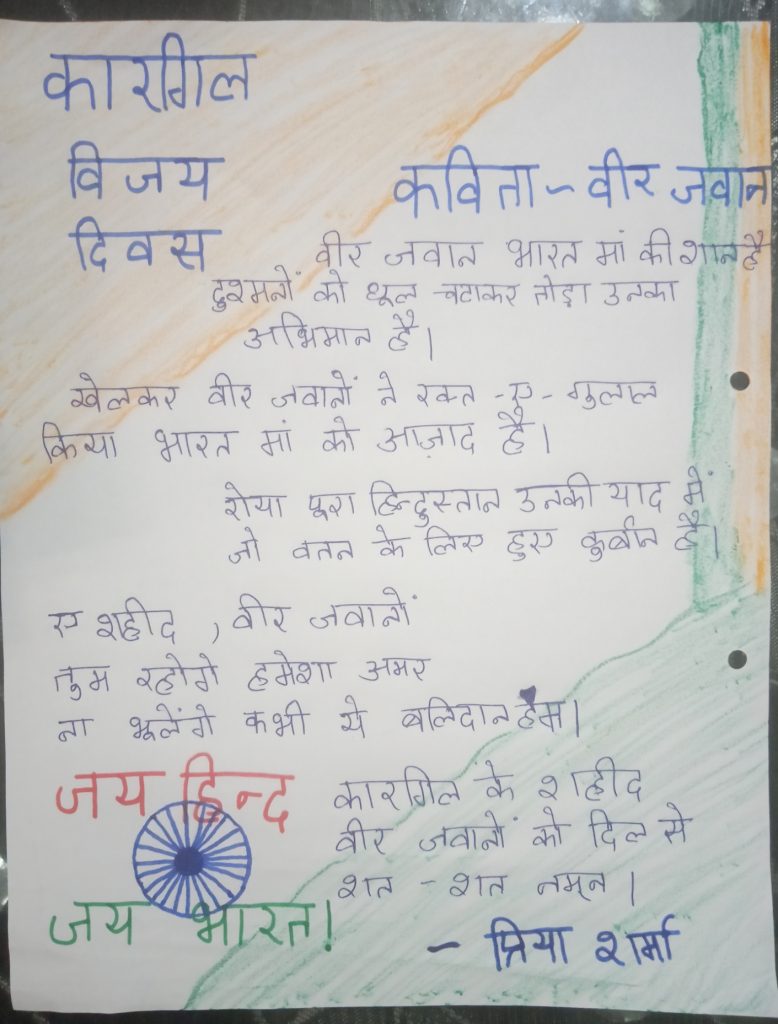 कारगिल
विजय
दिवस
कविता - वीर जवान
वीर जवान भारत मां की शान है
दुश्मनों को धूल चटाकर तोड़ा उनका
अभिमान है।
खेलकर वीर जवानों ने रक्त-ए-गुलाल
किया भारत मां को आज़ाद है।
रोया पूरा हिन्दुस्तान उनकी याद में
जो वतन के लिए हुए कुर्बान है।
ए शहीद, वीर जवानों
तुम रहोगे हमेशा अमर
ना भूलेंगे कभी ये बलिदान हम।
जय हिन्द
जय भारत!
कारगिल के शहीद
वीर जवानों को दिल से
शत - शत नमन।
- प्रिया शर्मा